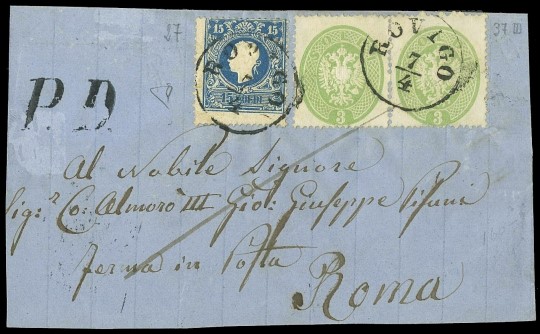 37
37 III
15
15 SOLDI
3
3
ROVIGO
4/7
ROVIGO
4/7
P.D.
Al Nobile Signore
Sig:r Co: Almorò III Gio: Giuseppe Pisani
ferma in Posta
Roma